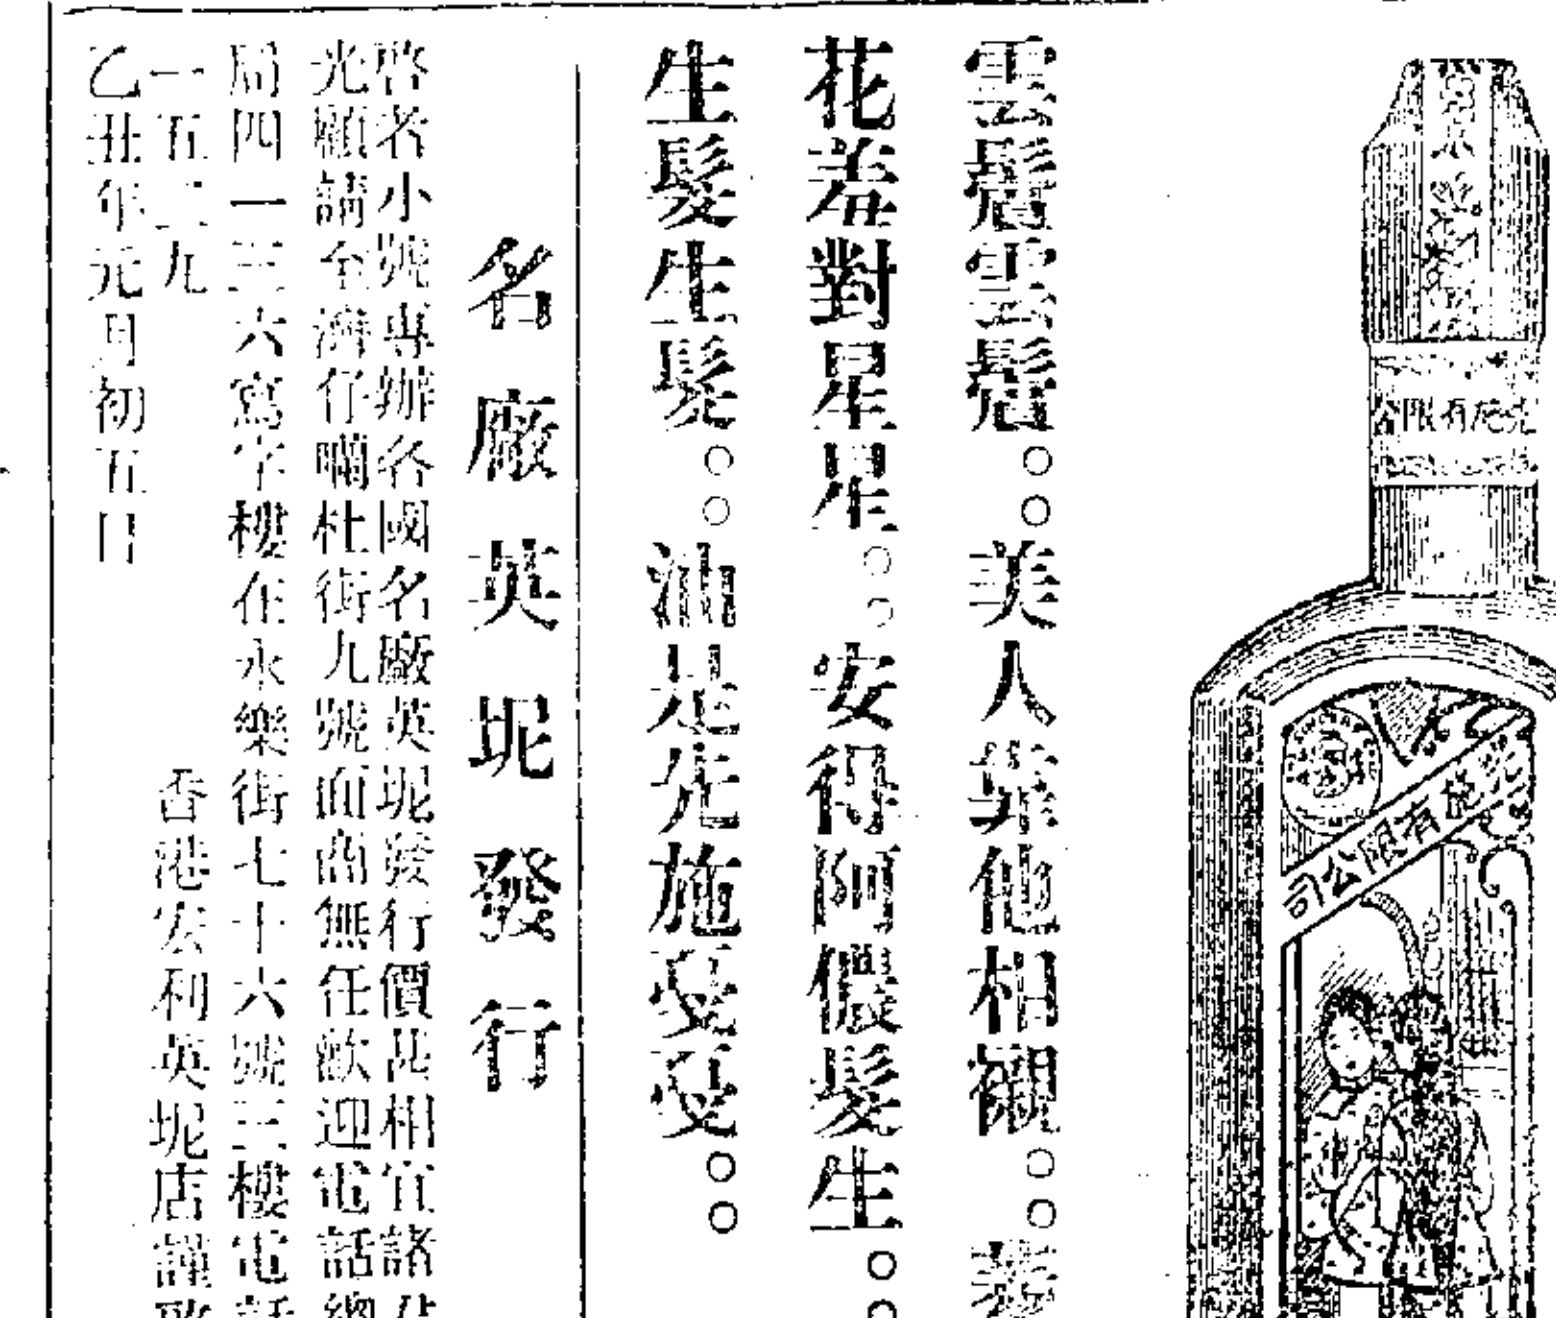 花露水
先施有限公
先施有限公司
雲鬟雲雲鬟。。美人笑他相襯。。
花羞對星星。。安得阿儂髮生。。
生髮生髮。。油是先施受受。。
名廠英坭發行
啓者小號專辦各國名廠英坭發行價甚相宜諸君
光顧請至濟仔嘣杜街九號面商無任歡迎電話總
局四一三六寫字樓在永樂街七十六號三樓電話
一五二九 香港宏利英坭店謹啟
乙丑年元月初五日